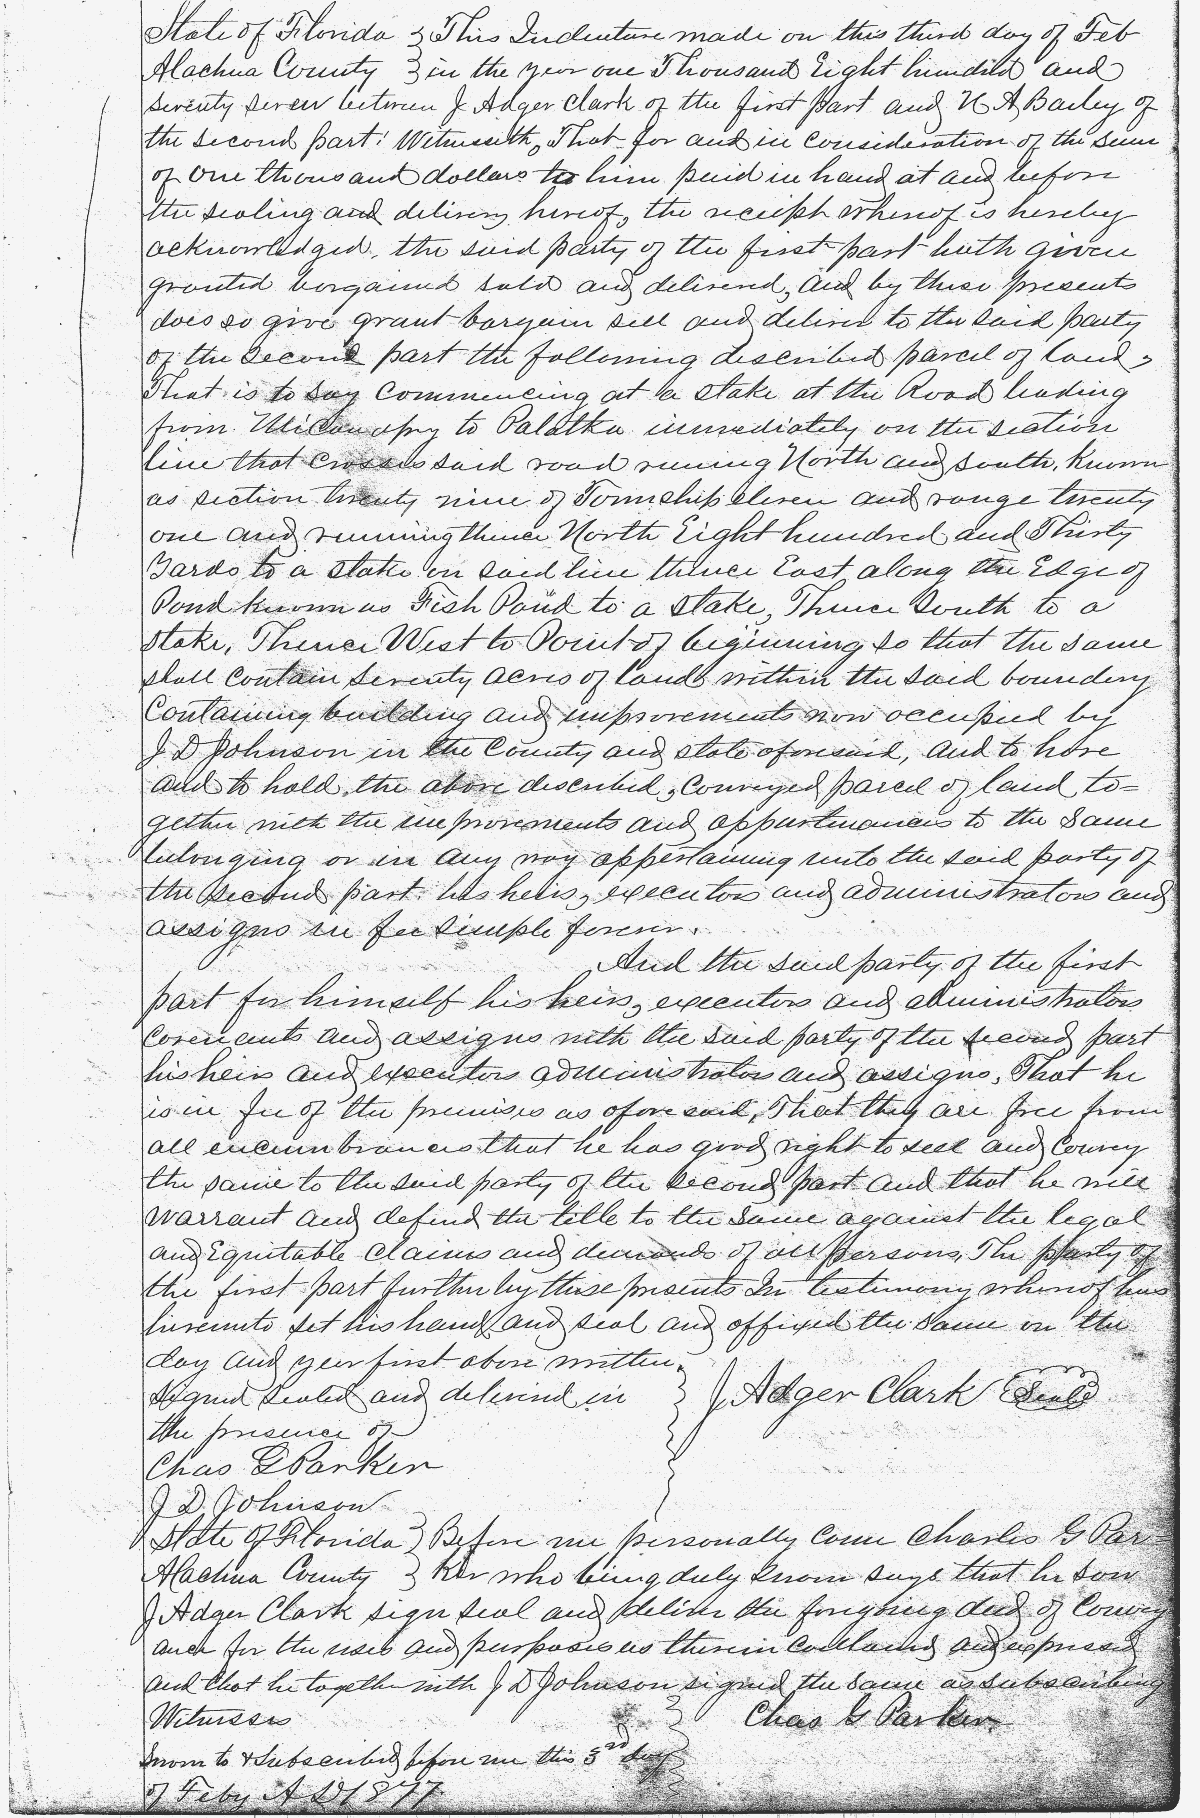 State of Florida } This Indenture made on this third day of Feb
Alachua County } in the year one Thousand Eight hundred and
seventy seven between J. Adger Clark of the first part and N A Bailey of
the second part: Witnesseth, That for and in consideration of the sum
of One thousand dollars to him paid in hand at and before
the sealing and delivery hereof, the receipt whereof is hereby
acknowledged, the said party of the first part hath given
granted bargained sold and delivered, and by these presents
does so give grant bargain sell and deliver to the said party
of the second part the following described parcel of land,
That is to say Commencing at a stake at the Road leading
from Micanopy to Palatka immediately on the section
line that crosses said road runing North and South, known
as section twenty nine of Township eleven and range twenty
one and running thence North Eight hundred and Thirty
Yards to a stake on said line thence East along the Edge of
Pond known as Fish Pond to a stake, Thence South to a
stake, Thence West to Point of beginning so that the same
shall contain seventy acres of land within the said boundery
Containing building and improvements now occupied by
J D Johnson in the County and state aforesaid, and to have
and to hold, the above described, Conveyed parcel of land to=
gether with the improvements and appurtenances to the same
belonging or in any way appertaining unto the said party of
the second part his heirs, executors and administrators and
assigns in fee simple forever.
And the said party of the first
part for himself his heirs, executors and administrators
covenants and assigns with the said party of the second part
his heirs and executors administrators and assigns, That he
is in fee of the premises as aforesaid, That they are free from
all encumbrances that he has good right to sell and Convey
the same to the said party of the second part and that he will
warrant and defend the title to the same against the legal
and Equitable claims and demands of all persons, The party of
the first part further by these presents In testimony whereof has
hereunto set his hand and seal and affixed the same on the
day and year first above written.
Signed sealed and delivered in } J. Adger Clark (Seal)
the presence of
Chas G Parker
J D Johnson
State of Florida } Before me personally came Charles G Par=
Alachua County } ker who being duly sworn says that he saw
J Adger Clark sign seal and deliver the forgoing deed of Convey
ance for the uses and purposes as therein contained and expressed
and that he together with J D Johnson signed the same as subscribing
Witnesses Chas G Parker
Sworn to & Subscribed before me this 3rd day
of Feby A D 1877